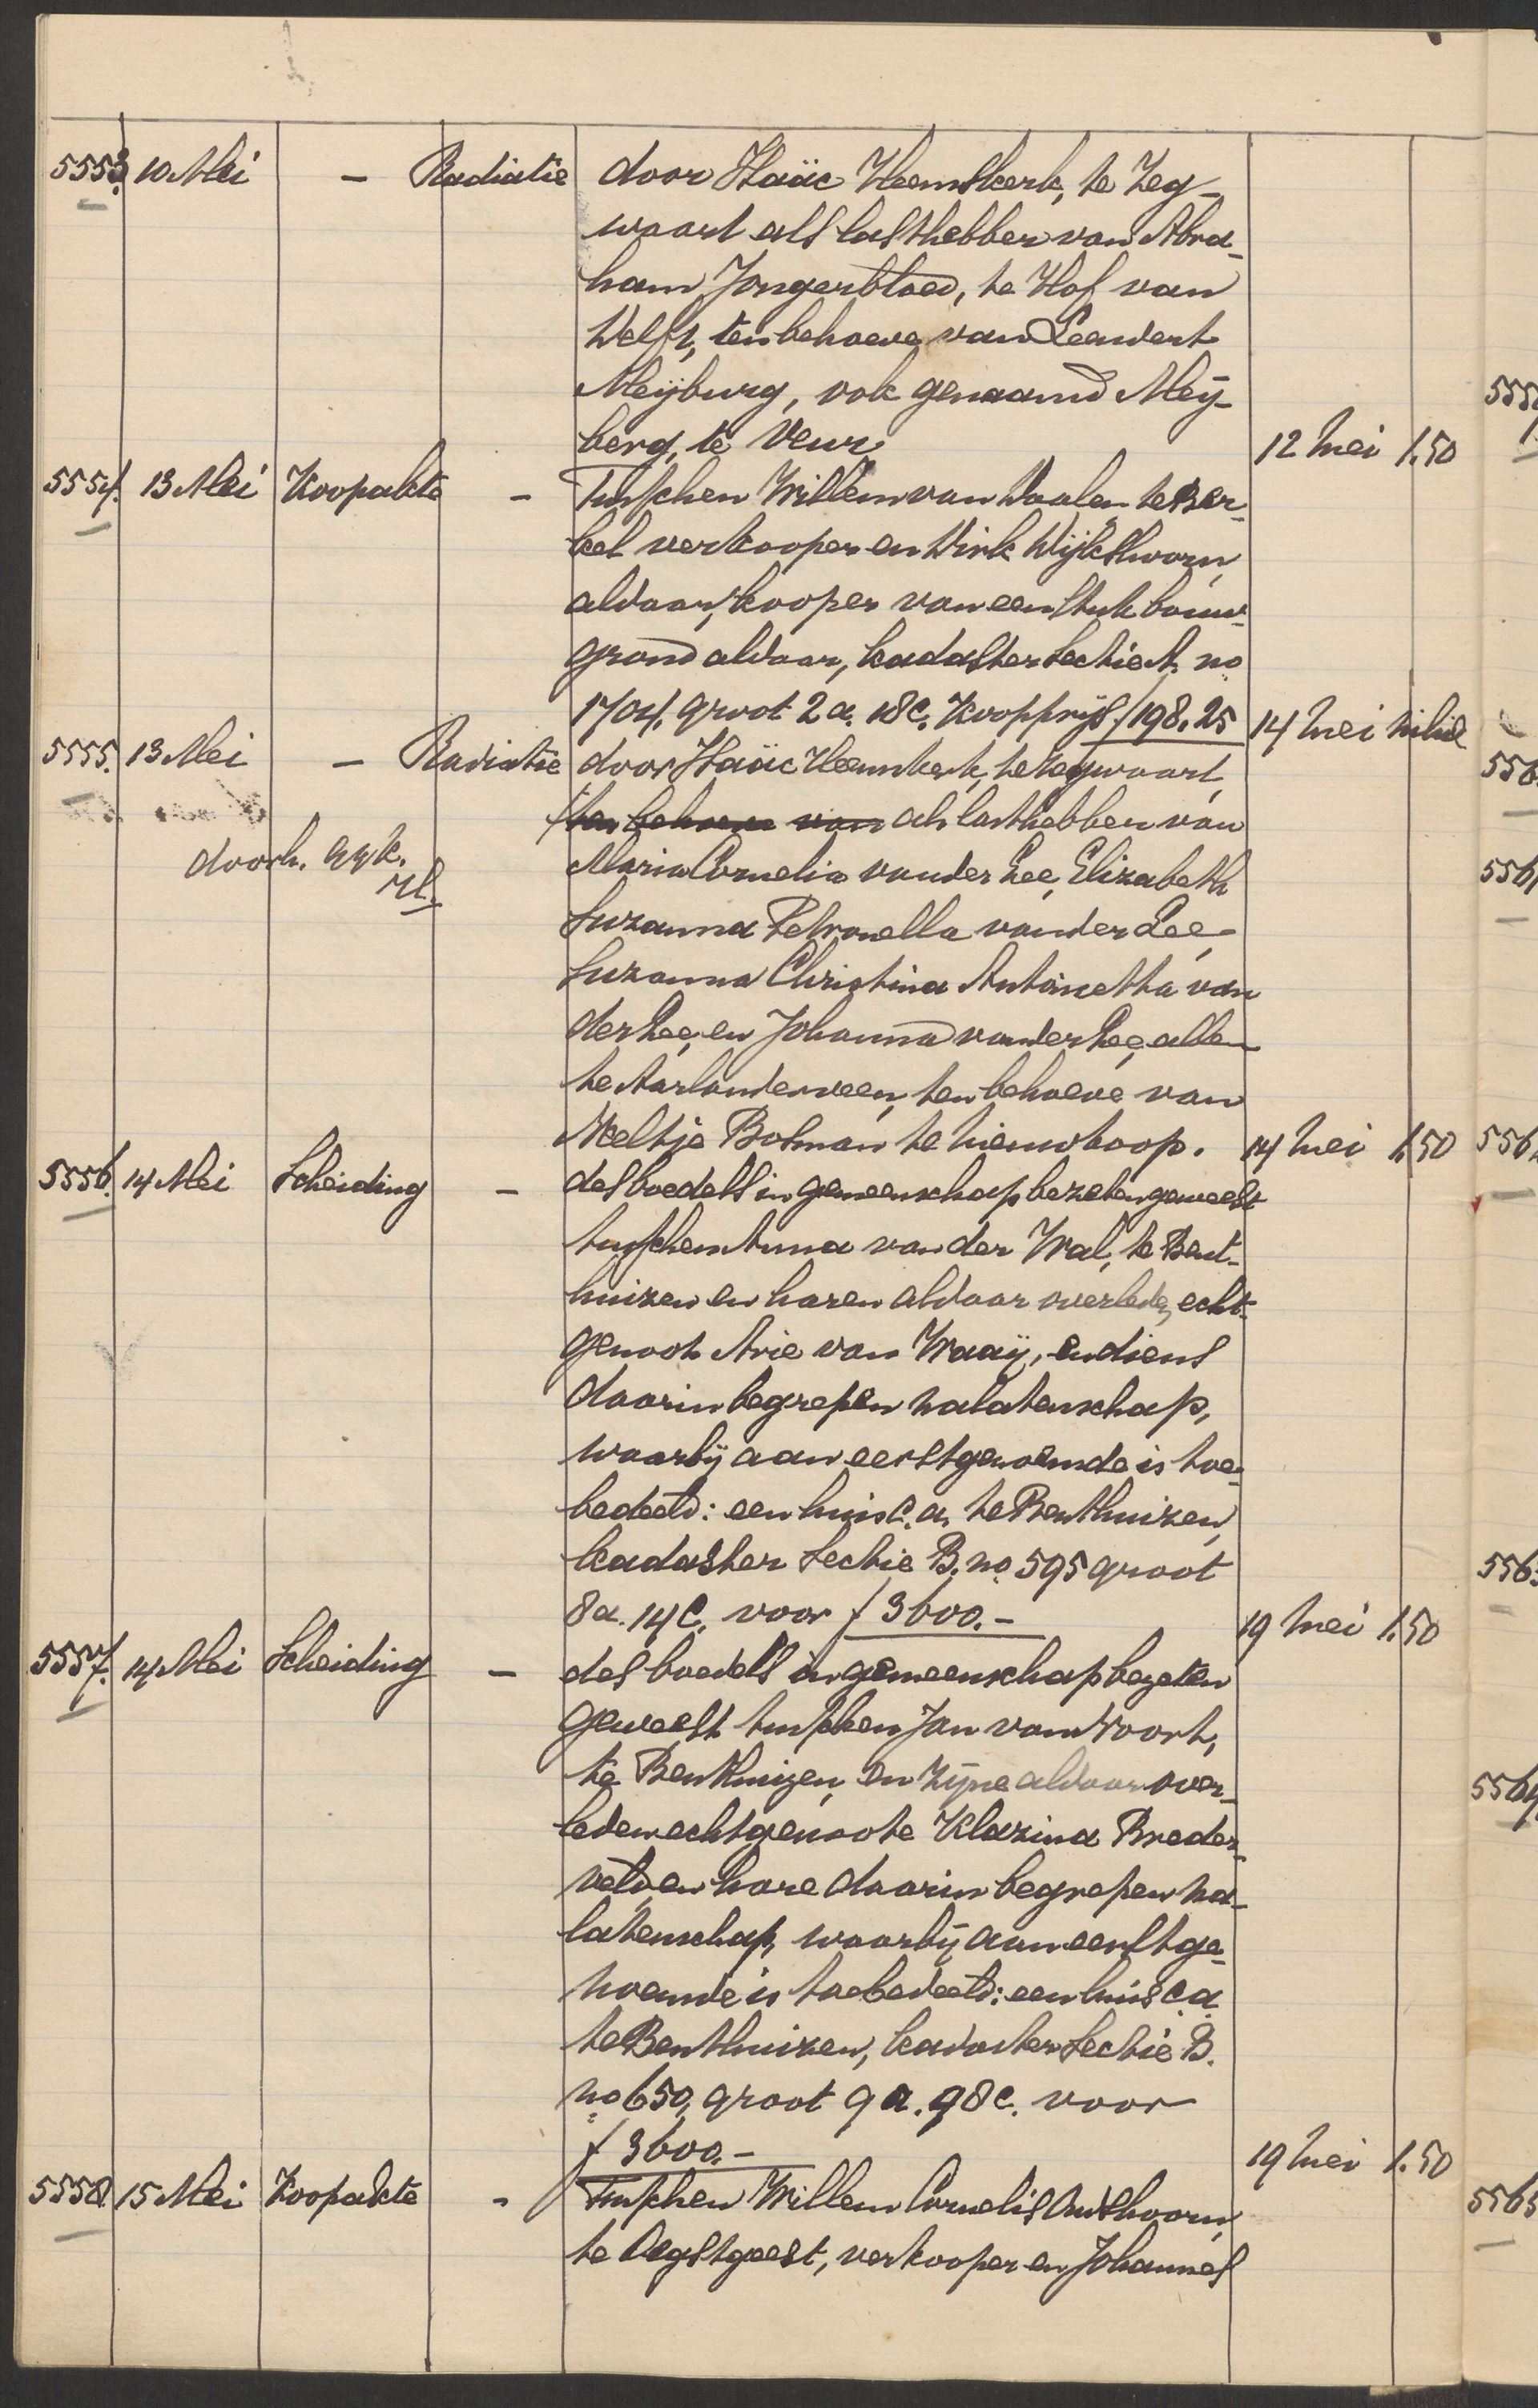 5553. 10 Mei - Radiatie door Isaäc Heemskerk, te Zeg-
waart als lasthebber van Abra-
ham Jongerbloed, te Hof van
Delft, ten behoeve van Leendert
Meijburg, ook genaamd Meij-
berg, te Veur 12 Mei 1.50
5554. 13 Mei Koopakte - Tusschen Willem van Daalen te Ber-
kel verkooper en Dirk Wijkshoorn,
aldaar, kooper van een stuk bouw-
grond aldaar, kadaster Sectie A. no.
1704, groot 2 a. 18 c. Koopprijs f 198.25 14 Mei nihil
5555. 13 Mei - Radiatie door Isaäc Heemskerk, te Zegwaart,
ten behoeve van als lasthebber van
doorh. ggk. Maria Cornelia van der Lee, Elizabeth
Suzanna Petronella van der Lee,
Suzanna Christina Antonetta van
der Lee, en Johanna van der Lee, allen
te Aarlanderveen, ten behoeve van
Neeltje Botman te Nieuwkoop. 14 Mei 1.50
5556. 14 Mei Scheiding - des boedels in gemeenschap bezeten geweest
tusschen Anna van der Wal, te Bent-
huizen en haren aldaar overleden echt-
genoot Arie van Waaij, en diens
daarin begrepen nalatenschap,
waarbij aan eerstgenoemde is toe-
bedeeld: een huis c.a. te Benthuizen,
kadaster Sectie B. no. 595 groot
8 a. 14 c. voor f 3600.- 19 Mei 1.50
5557. 14 Mei Scheiding - des boedels in gemeenschap bezeten
geweest tusschen Jan van Voort,
te Benthuizen, en zijne aldaar over-
leden echtgenoote Klazina Breder-
veld en hare daarin begrepen na-
latenschap, waarbij aan eerstge-
noemde is toebedeeld: een huis c.a.
te Benthuizen, kadaster Sectie B.
no. 650, groot 9 a. 98 c. voor
f 3600.- 19 Mei 1.50
5558. 15 Mei Koopakte - Tusschen Willem Cornelis Outshoorn,
te Oegstgeest, verkooper en Johannes